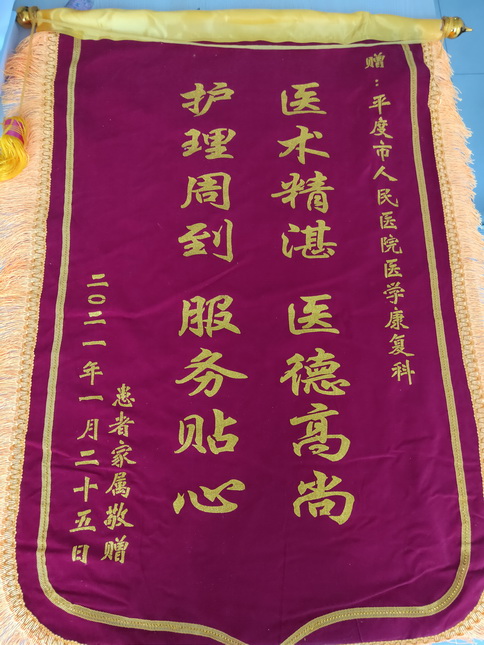 赠：平度市人民医院医学康复科
医术精湛 医德高尚
护理周到 服务贴心
患者家属敬赠
二〇二一年一月二十五日